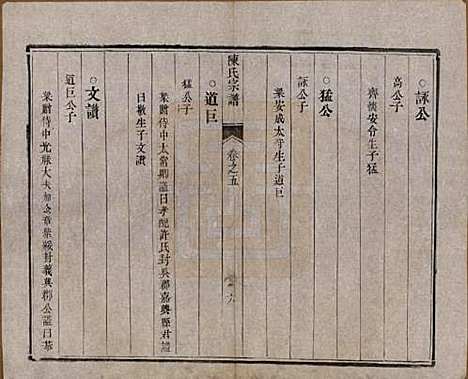 ○詠公
高公子
齊懷安令生子猛
○猛公
詠公子
梁安成太守生子道巨
陳氏宗譜 卷之五 六
○道巨
猛公子
梁贈侍中太常卿諡曰孝配許氏封吳郡嘉興縣君諡
曰敬生子文讚
○文讚
道巨公子
梁贈侍中光祿大夫加金章紫綬封義興郡公諡曰恭